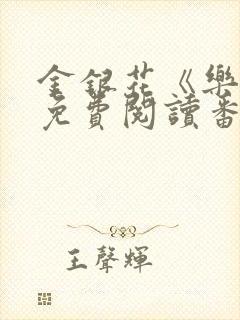 金銀花《樂
免費閱讀番
王聲輝